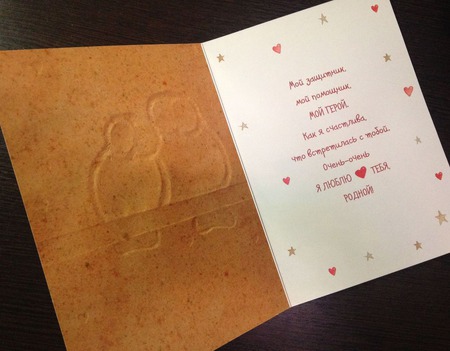 Мой защитник,
мой помощник,
МОЙ ГЕРОЙ.
Как я счастлива,
что встретилась с тобой.
Очень-очень
Я ЛЮБЛЮ ТЕБЯ,
РОДНОЙ!